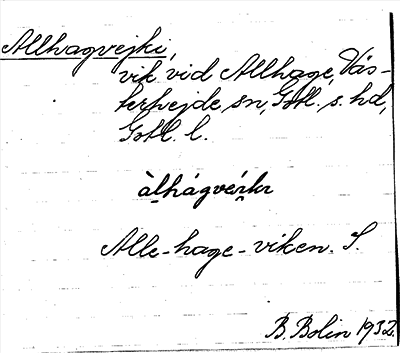 Allhagvejki,
vik vid Allhage, Väs-
terhejde sn, Gotl. s. hd,
Gotl. l.
àlhágvéɪkɪ
Alle-hage-viken. S.
B. Bolin 1932.